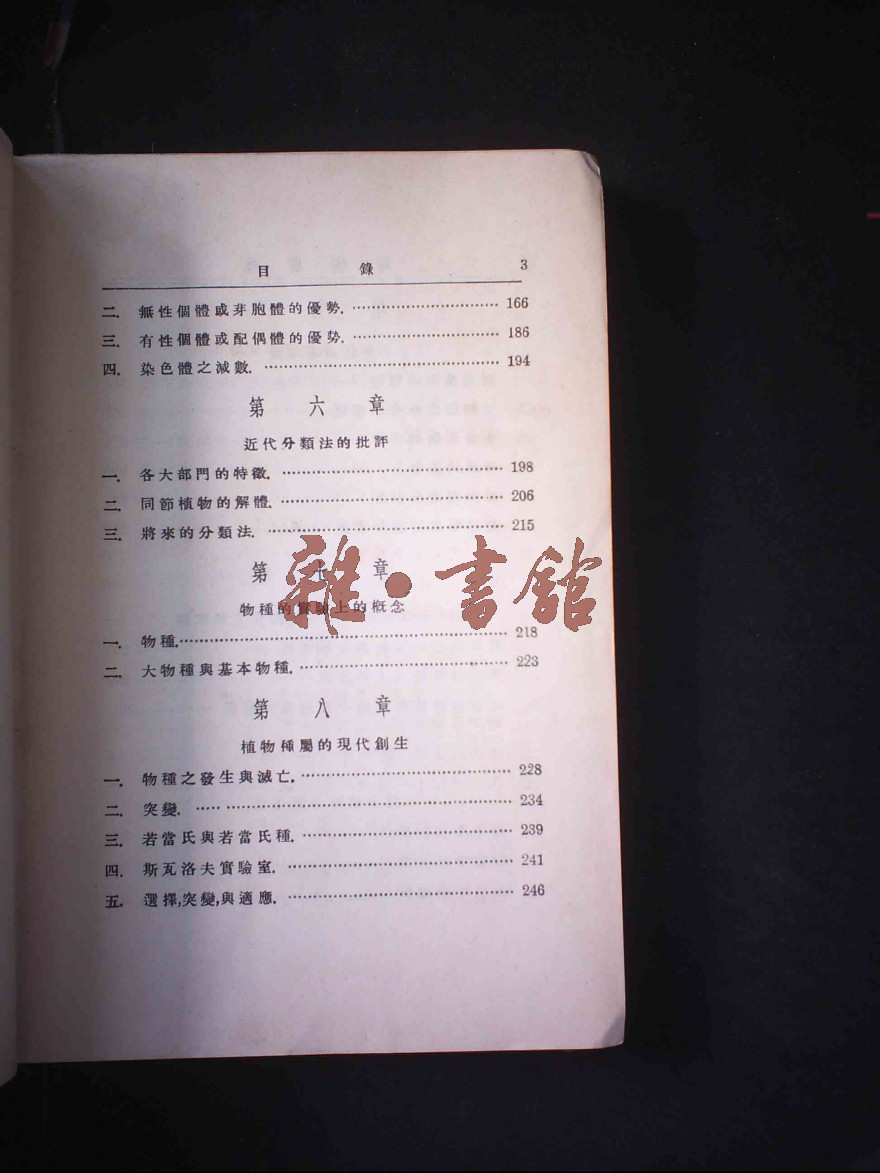 目 錄 3
二. 無性個體或芽胞體的優勢. 166
三. 有性個體或配偶體的優势. 186
四. 染色體之減數. 194
第 六 章
近代分類法的批評
一. 各大部門的特徵. 198
二. 同節植物的解體. 206
三. 將來的分類法. 215
第 七 章
物種的實驗上的概念
雜·書館
一. 物種. 218
二. 大物種與基本物種. 223
第 八 章
植物種屬的現代創生
一. 物種之發生與滅亡. 228
二. 突變. 234
三. 若當氏與若當氏種. 239
四. 斯瓦洛夫實驗室. 241
五. 選擇,突變,與適應. 246